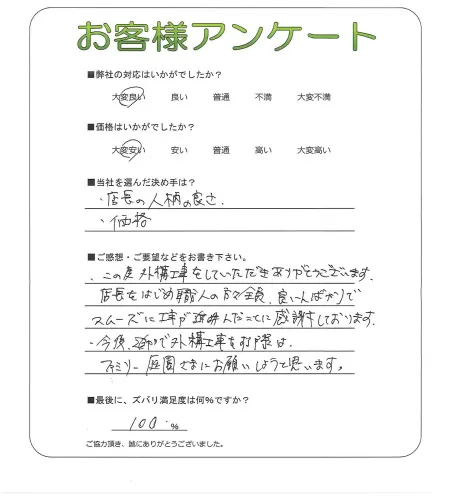 お客様アンケート
■弊社の対応はいかがでしたか？
大変良い 良い 普通 不満 大変不満
■価格はいかがでしたか？
大変安い 安い 普通 高い 大変高い
■当社を選んだ決め手は？
・店長の人柄の良さ.
・価格
■ご感想・ご要望などをお書き下さい。
・この度外構工事をしていただきありがとうございます.
店長をはじめ職人の方々全員、良い人ばかりで
スムーズに工事が進んだことに感謝しております.
・今後、追加で外構工事をする際は、
ファミリー庭園さまにお願いしようと思います。
■最後に、ズバリ満足度は何%ですか？
100.%
ご協力頂き、誠にありがとうございました。